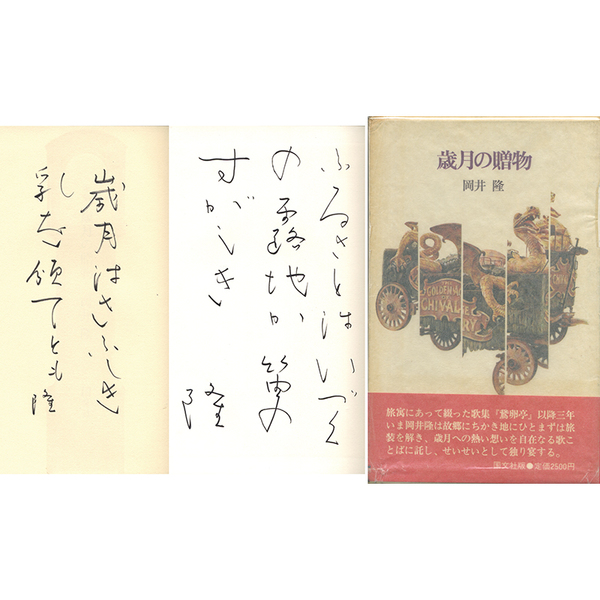 歳月はさふしき
乳を頒てとも
隆
ふるさとはいづく
の露地か
すがしき
隆
歳月の贈物
岡井 隆
GOLDEN
CHIVAL
RY
旅寓にあって綴った歌集『鵞卵亭』以降三年
いま岡井隆は故郷にちかき地にひとまずは旅
装を解き、歳月への熱い想いを自在なる歌こ
とばに託し、せいせいとして独り宴する。
国文社版●定価2500円